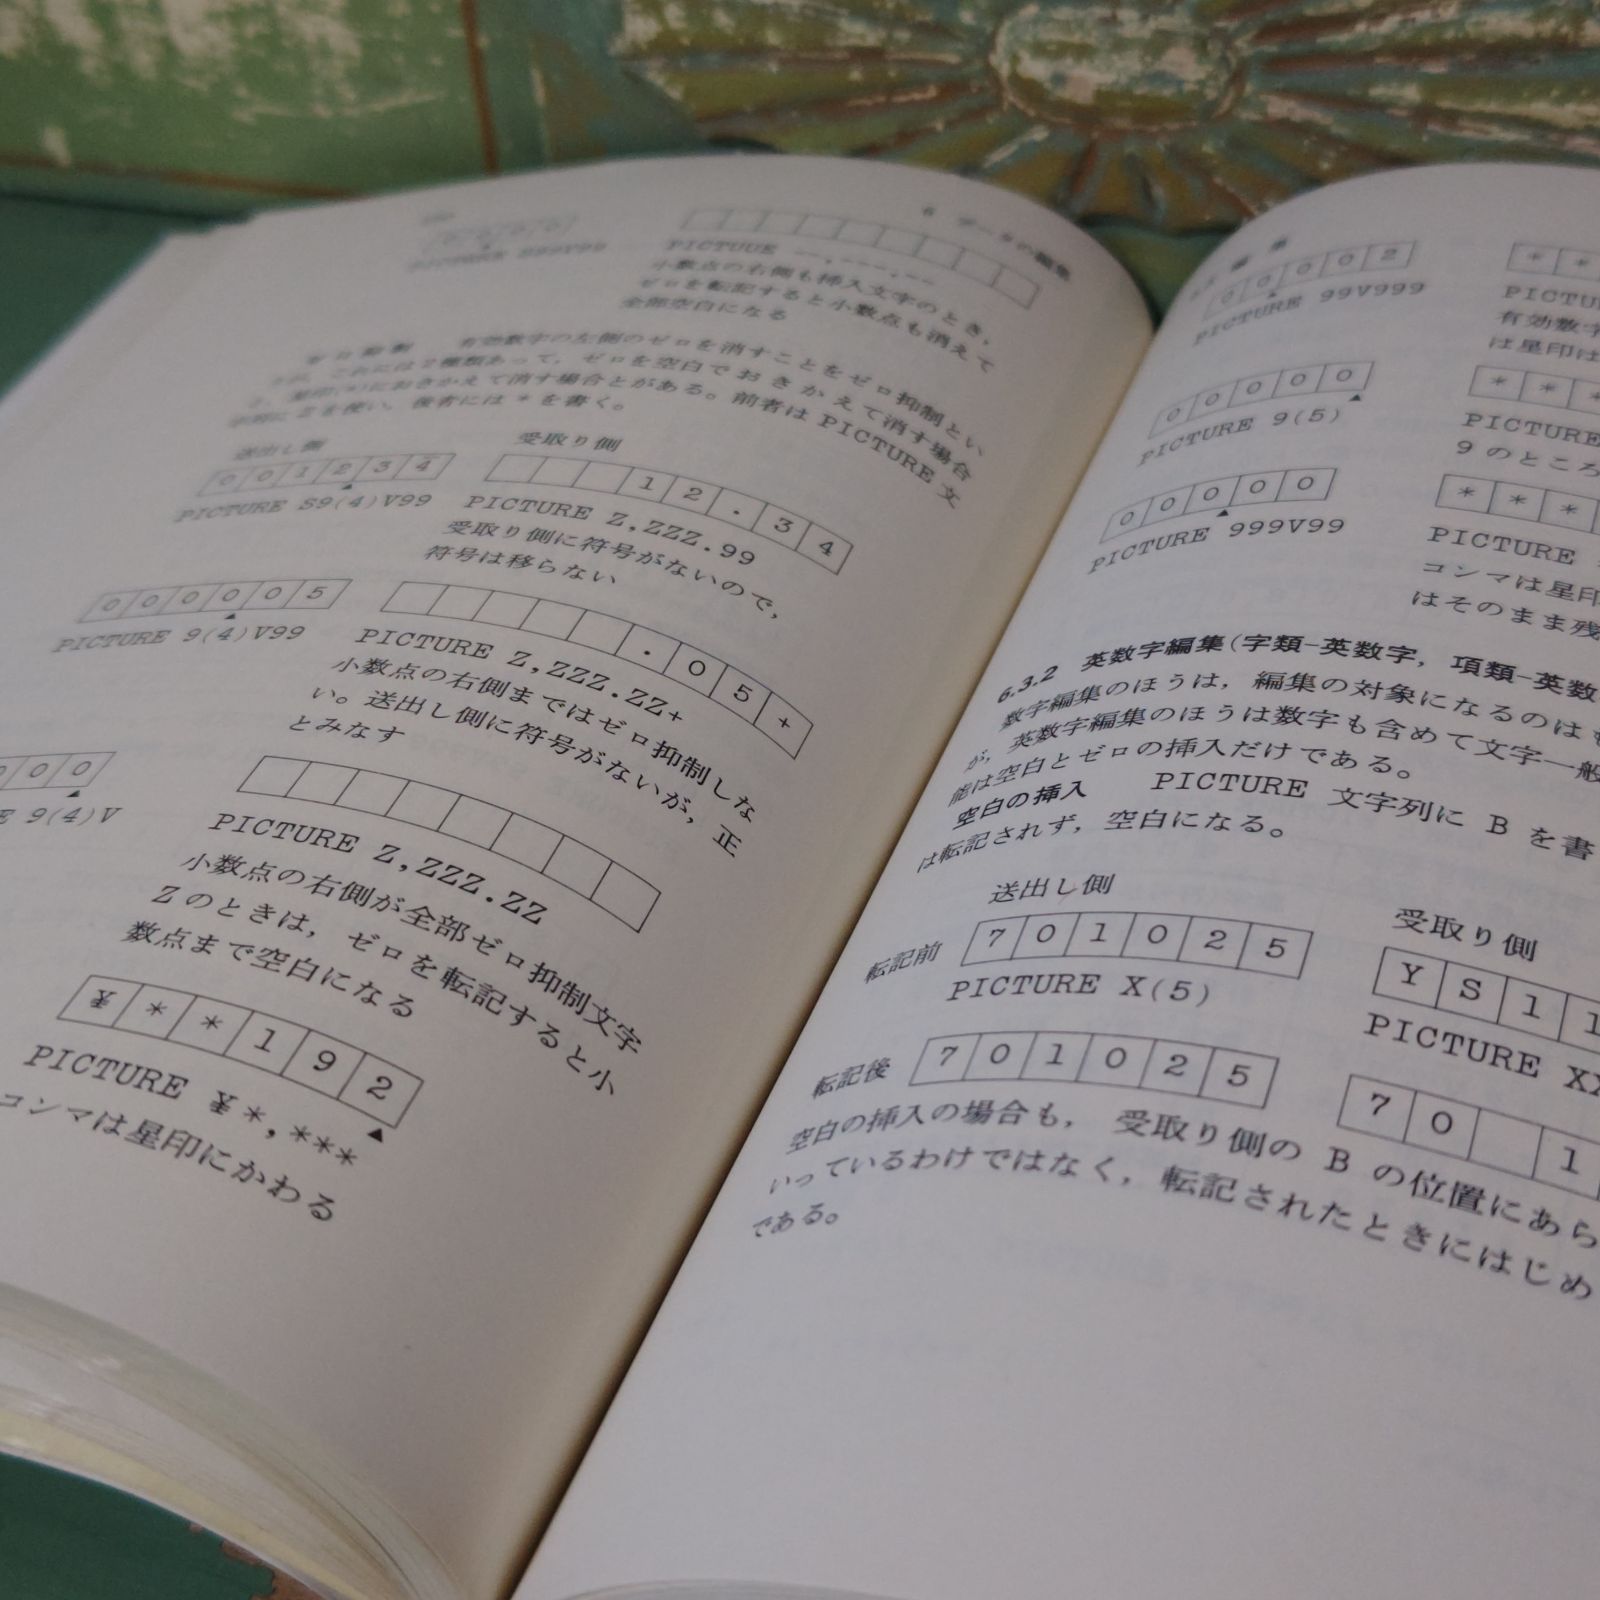 6 データの編集
PICTURE 999V99
PICTUUE --,---.--
小数点の右側も挿入文字のとき,
ゼロを転記すると小数点も消えて
全部空白になる
ゼロ抑制 有効数字の左側のゼロを消すことをゼロ抑制とい
これには2種類あって, ゼロを空白でおきかえて消す場合
星印(*)におきかえて消す場合とがある。前者は PICTURE 文
字列に Z を使い, 後者には * を書く。
送出し側 受取り側
0 0 1 2 3 4
1 2 . 3 4
PICTURE S9(4)V99
PICTURE Z,ZZZ.99
受取り側に符号がないので,
符号は移らない
0 0 0 0 0 5
. 0 5 +
PICTURE 9(4)V99
PICTURE Z,ZZZ.ZZ+
小数点の右側まではゼロ抑制しな
い。送出し側に符号がないが, 正
とみなす
0 0
E 9(4)V
PICTURE Z,ZZZ.ZZ
小数点の右側が全部ゼロ抑制文字
Z のときは, ゼロを転記すると小
数点まで空白になる
¥ * * 1 9 2
PICTURE ¥*,***
コンマは星印にかわる
0 0 0 0 2
* *
PICTURE 99V999
PICTU
有効数字
は星印は
0 0 0 0 0
* * *
PICTURE 9(5)
PICTURE
9 のところ
0 0 0 0 0
* * *
PICTURE 999V99
PICTURE
コンマは星印
はそのまま残
6.3.2 英数字編集(字類-英数字, 項類-英数
数字編集のほうは, 編集の対象になるのは
が, 英数字編集のほうは数字も含めて文字一般
能は空白とゼロの挿入だけである。
空白の挿入 PICTURE 文字列に B を書
は転記されず, 空白になる。
送出し側 受取り側
転記前 7 0 1 0 2 5
Y S 1 1
PICTURE X(5)
PICTURE XX
転記後 7 0 1 0 2 5
7 0 1
空白の挿入の場合も, 受取り側の B の位置にあら
いっているわけではなく, 転記されたときにはじめ
である。